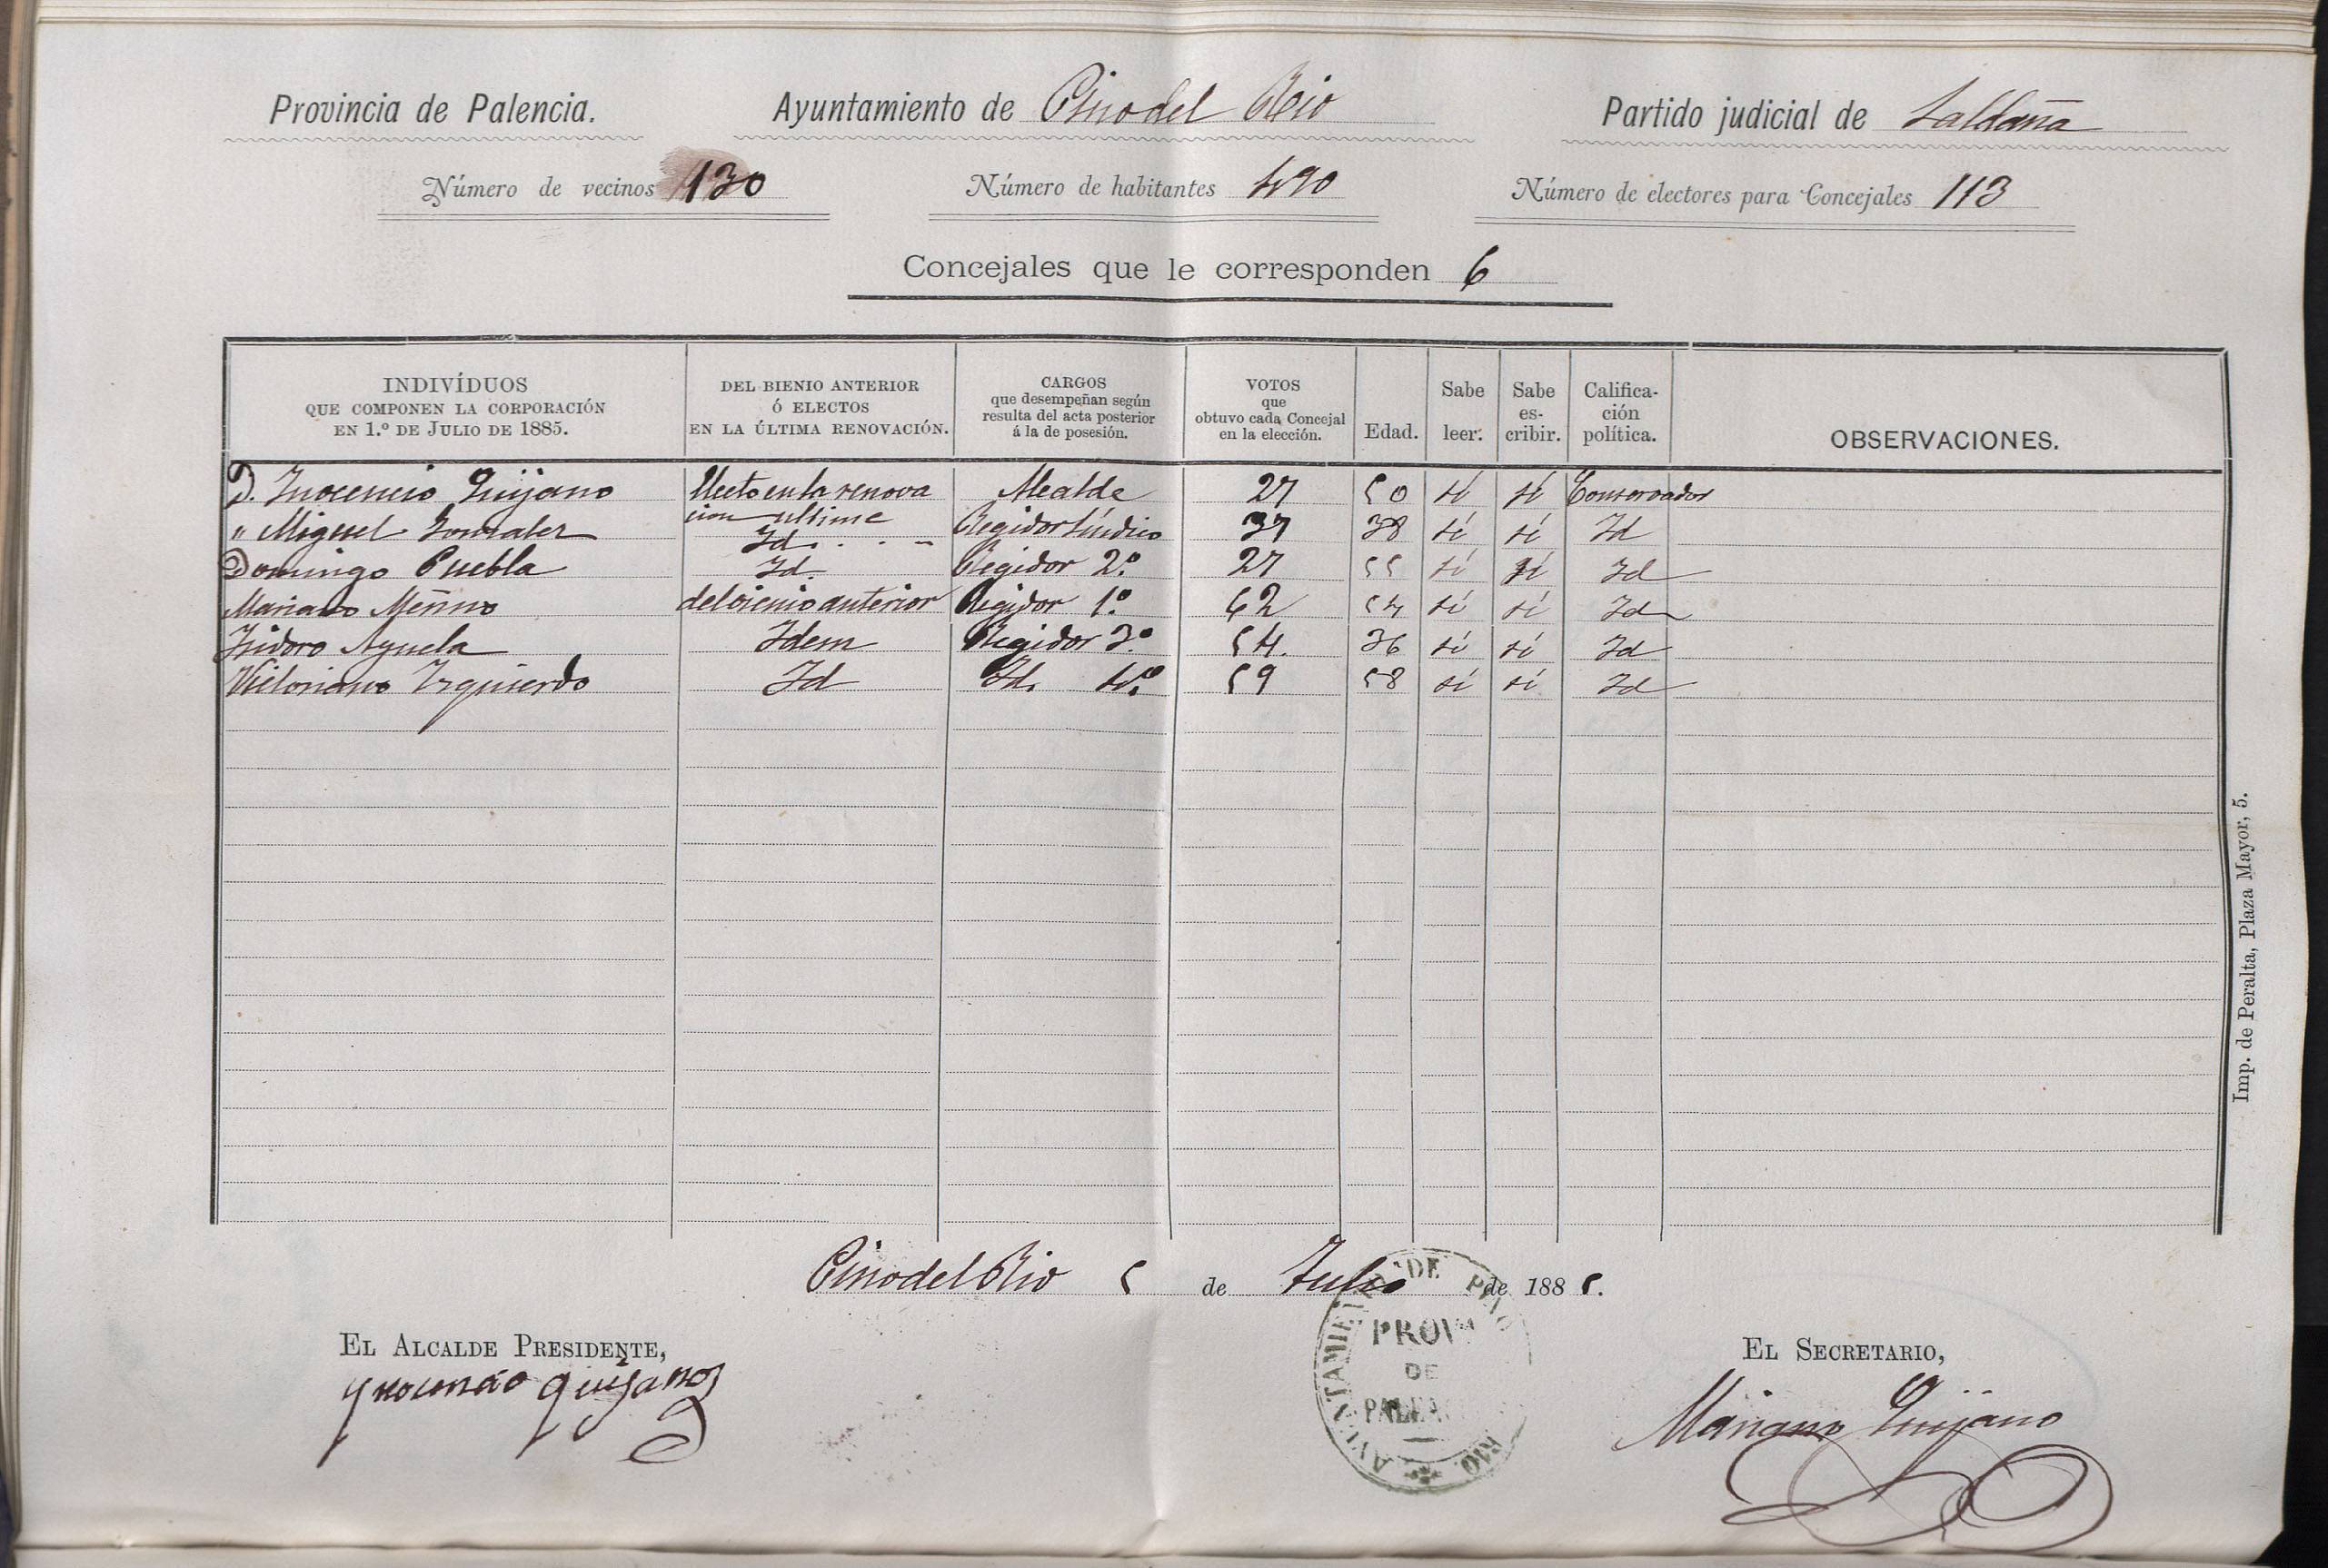 Provincia de Palencia. Ayuntamiento de Pino del Rio Partido judicial de Saldaña
Número de vecinos 130 Número de habitantes 490 Número de electores para Concejales 113
Concejales que le corresponden 6
INDIVÍDUOS QUE COMPONEN LA CORPORACIÓN EN 1.º DE JULIO DE 1885. DEL BIENIO ANTERIOR Ó ELECTOS EN LA ÚLTIMA RENOVACIÓN. CARGOS que desempeñan según resulta del acta posterior á la de posesión. VOTOS que obtuvo cada Concejal en la elección. Edad. Sabe leer. Sabe es-cribir. Califica-ción política. OBSERVACIONES.
D. Inocencio Quijano Electo en la renova cion ultima Alcalde 27 50 sí sí Conservador
" Miguel Gonzalez Id. . . - Regidor Síndico 37 38 sí sí Id
Domingo Puebla Id. Regidor 2º 27 55 sí sí Id
Mariano Merino del bienio anterior Regidor 1º 62 54 sí sí Id
Isidoro Ayuela Idem Regidor 3º 54. 36 sí sí Id
Victoriano Izquierdo Id Id. 4º 59 58 sí sí Id
Pino del Rio 5 de Julio de 1885.
EL ALCALDE PRESIDENTE, EL SECRETARIO,
Ynocencio Quijano Mariano Quijano
PROVª
DE
Imp. de Peralta, Plaza Mayor, 5.